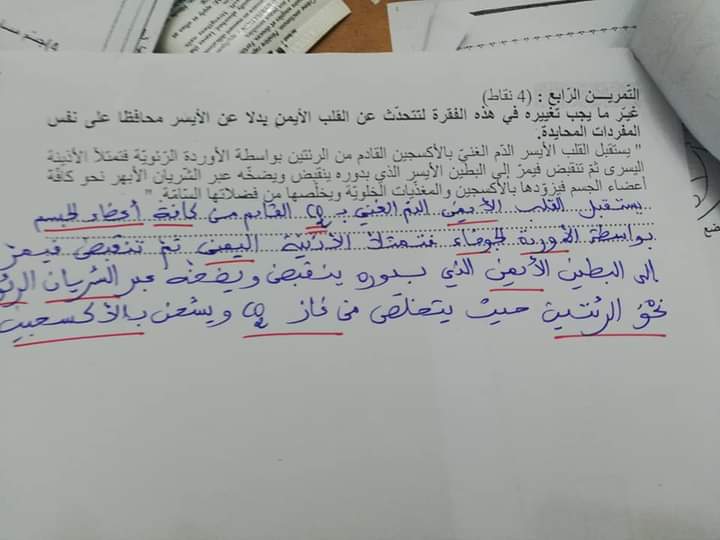 التّمريــن الرّابع : (4 نقاط)
غيّر ما يجب تغييره في هذه الفقرة لتتحدّث عن القلب الأيمن بدلا عن الأيسر محافظا على نفس
المفردات المحايدة.
" يستقبل القلب الأيسر الدّم الغنيّ بالأكسجين القادم من الرئتين بواسطة الأوردة الرّئويّة فتمتلأ الأذينة
اليسرى ثمّ تنقبض فيمرّ إلى البطين الأيسر الذي بدوره ينقبض ويضخّه عبر الشّريان الأبهر نحو كافّة
أعضاء الجسم فيزوّدها بالأكسجين والمغذّيات الخلويّة ويخلّصها من فضلاتها السّامّة. "
يستقبل القلب الأيمن الدم الغني بـ CO2 القادم من كافة أعضاء الجسم
بواسطة الأوردة الجوفاء فتمتلأ الأذينة اليمنى ثم تنقبض فيمر
إلى البطين الأيمن الذي بدوره ينقبض ويضخه عبر الشريان
نحو الرئتين حيث يتخلص من غاز CO2 ويشحن بالأكسجين